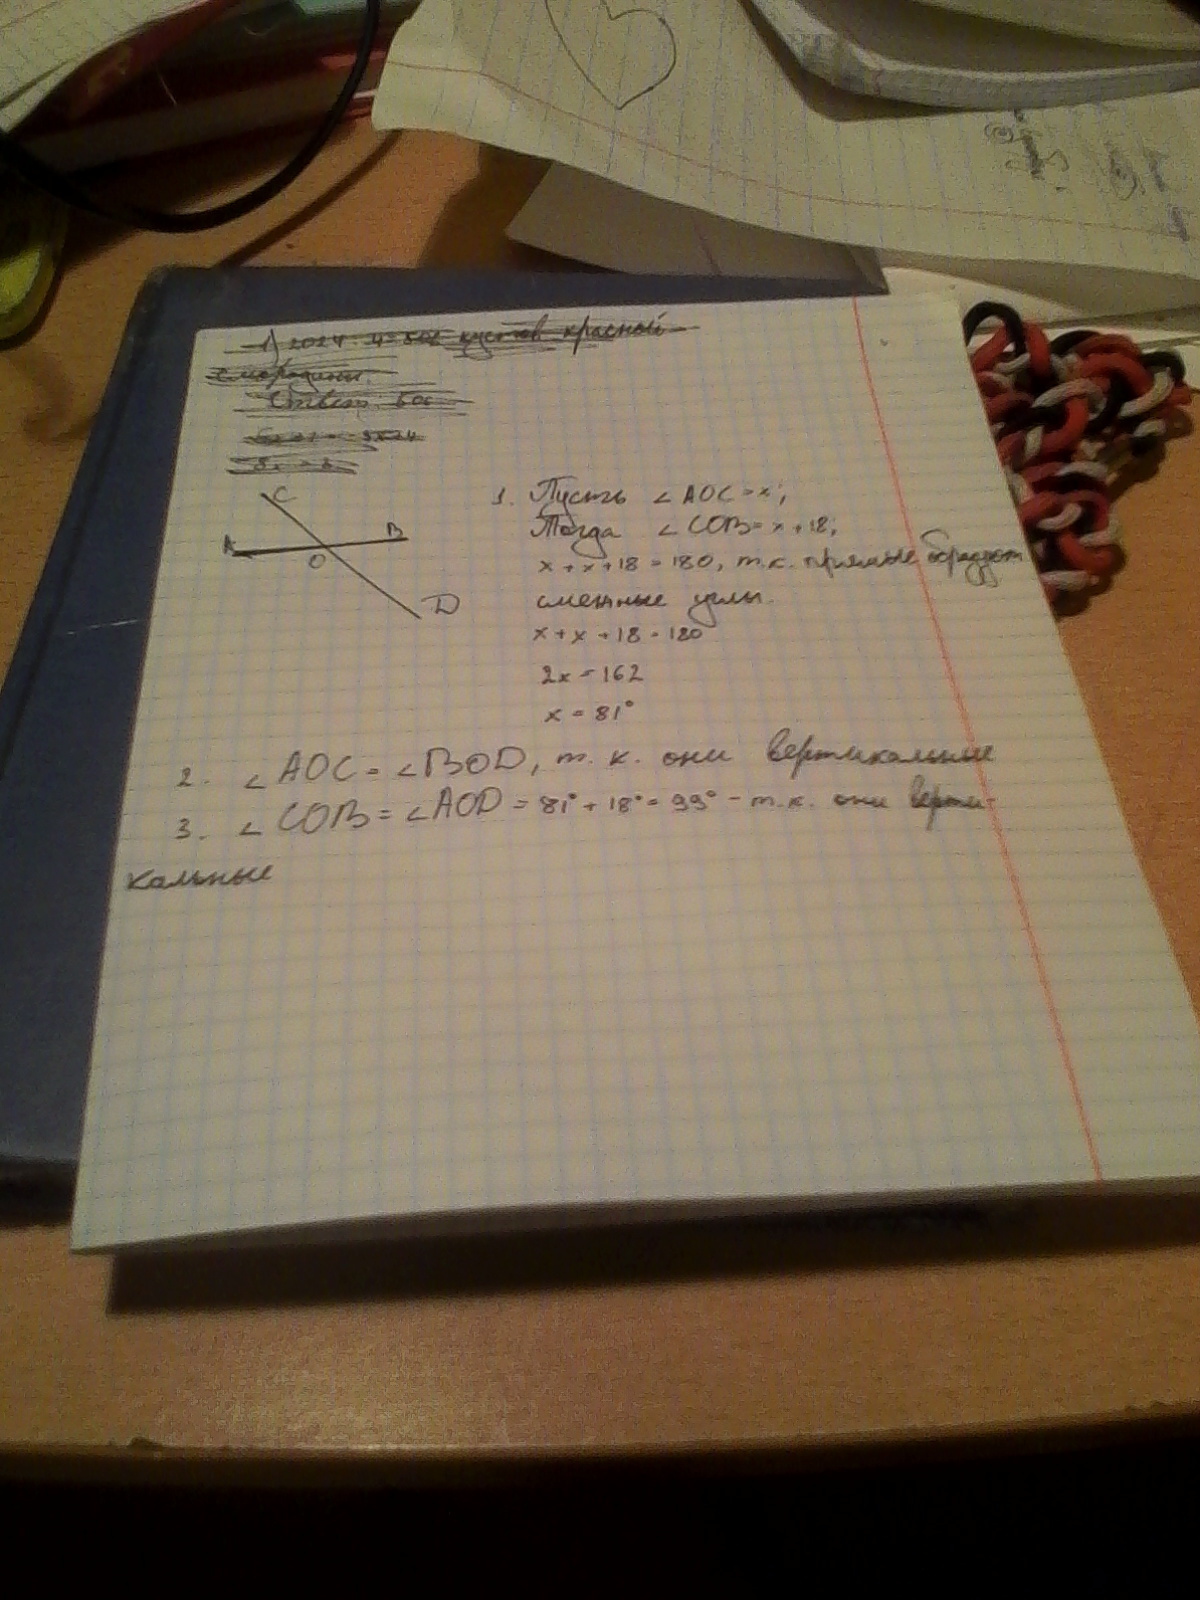 1) 2024 : 4 = 506 кустов красной
смородины.
Ответ: 506
C
A
B
O
D
1. Пусть ∠AOC = x;
Тогда ∠COB = x + 18;
x + x + 18 = 180, т.к. прямые образуют
смежные углы.
x + x + 18 = 180
2x = 162
x = 81°
2. ∠AOC = ∠BOD, т. к. они вертикальные
3. ∠COB = ∠AOD = 81° + 18° = 99° - т.к. они верти-
кальные